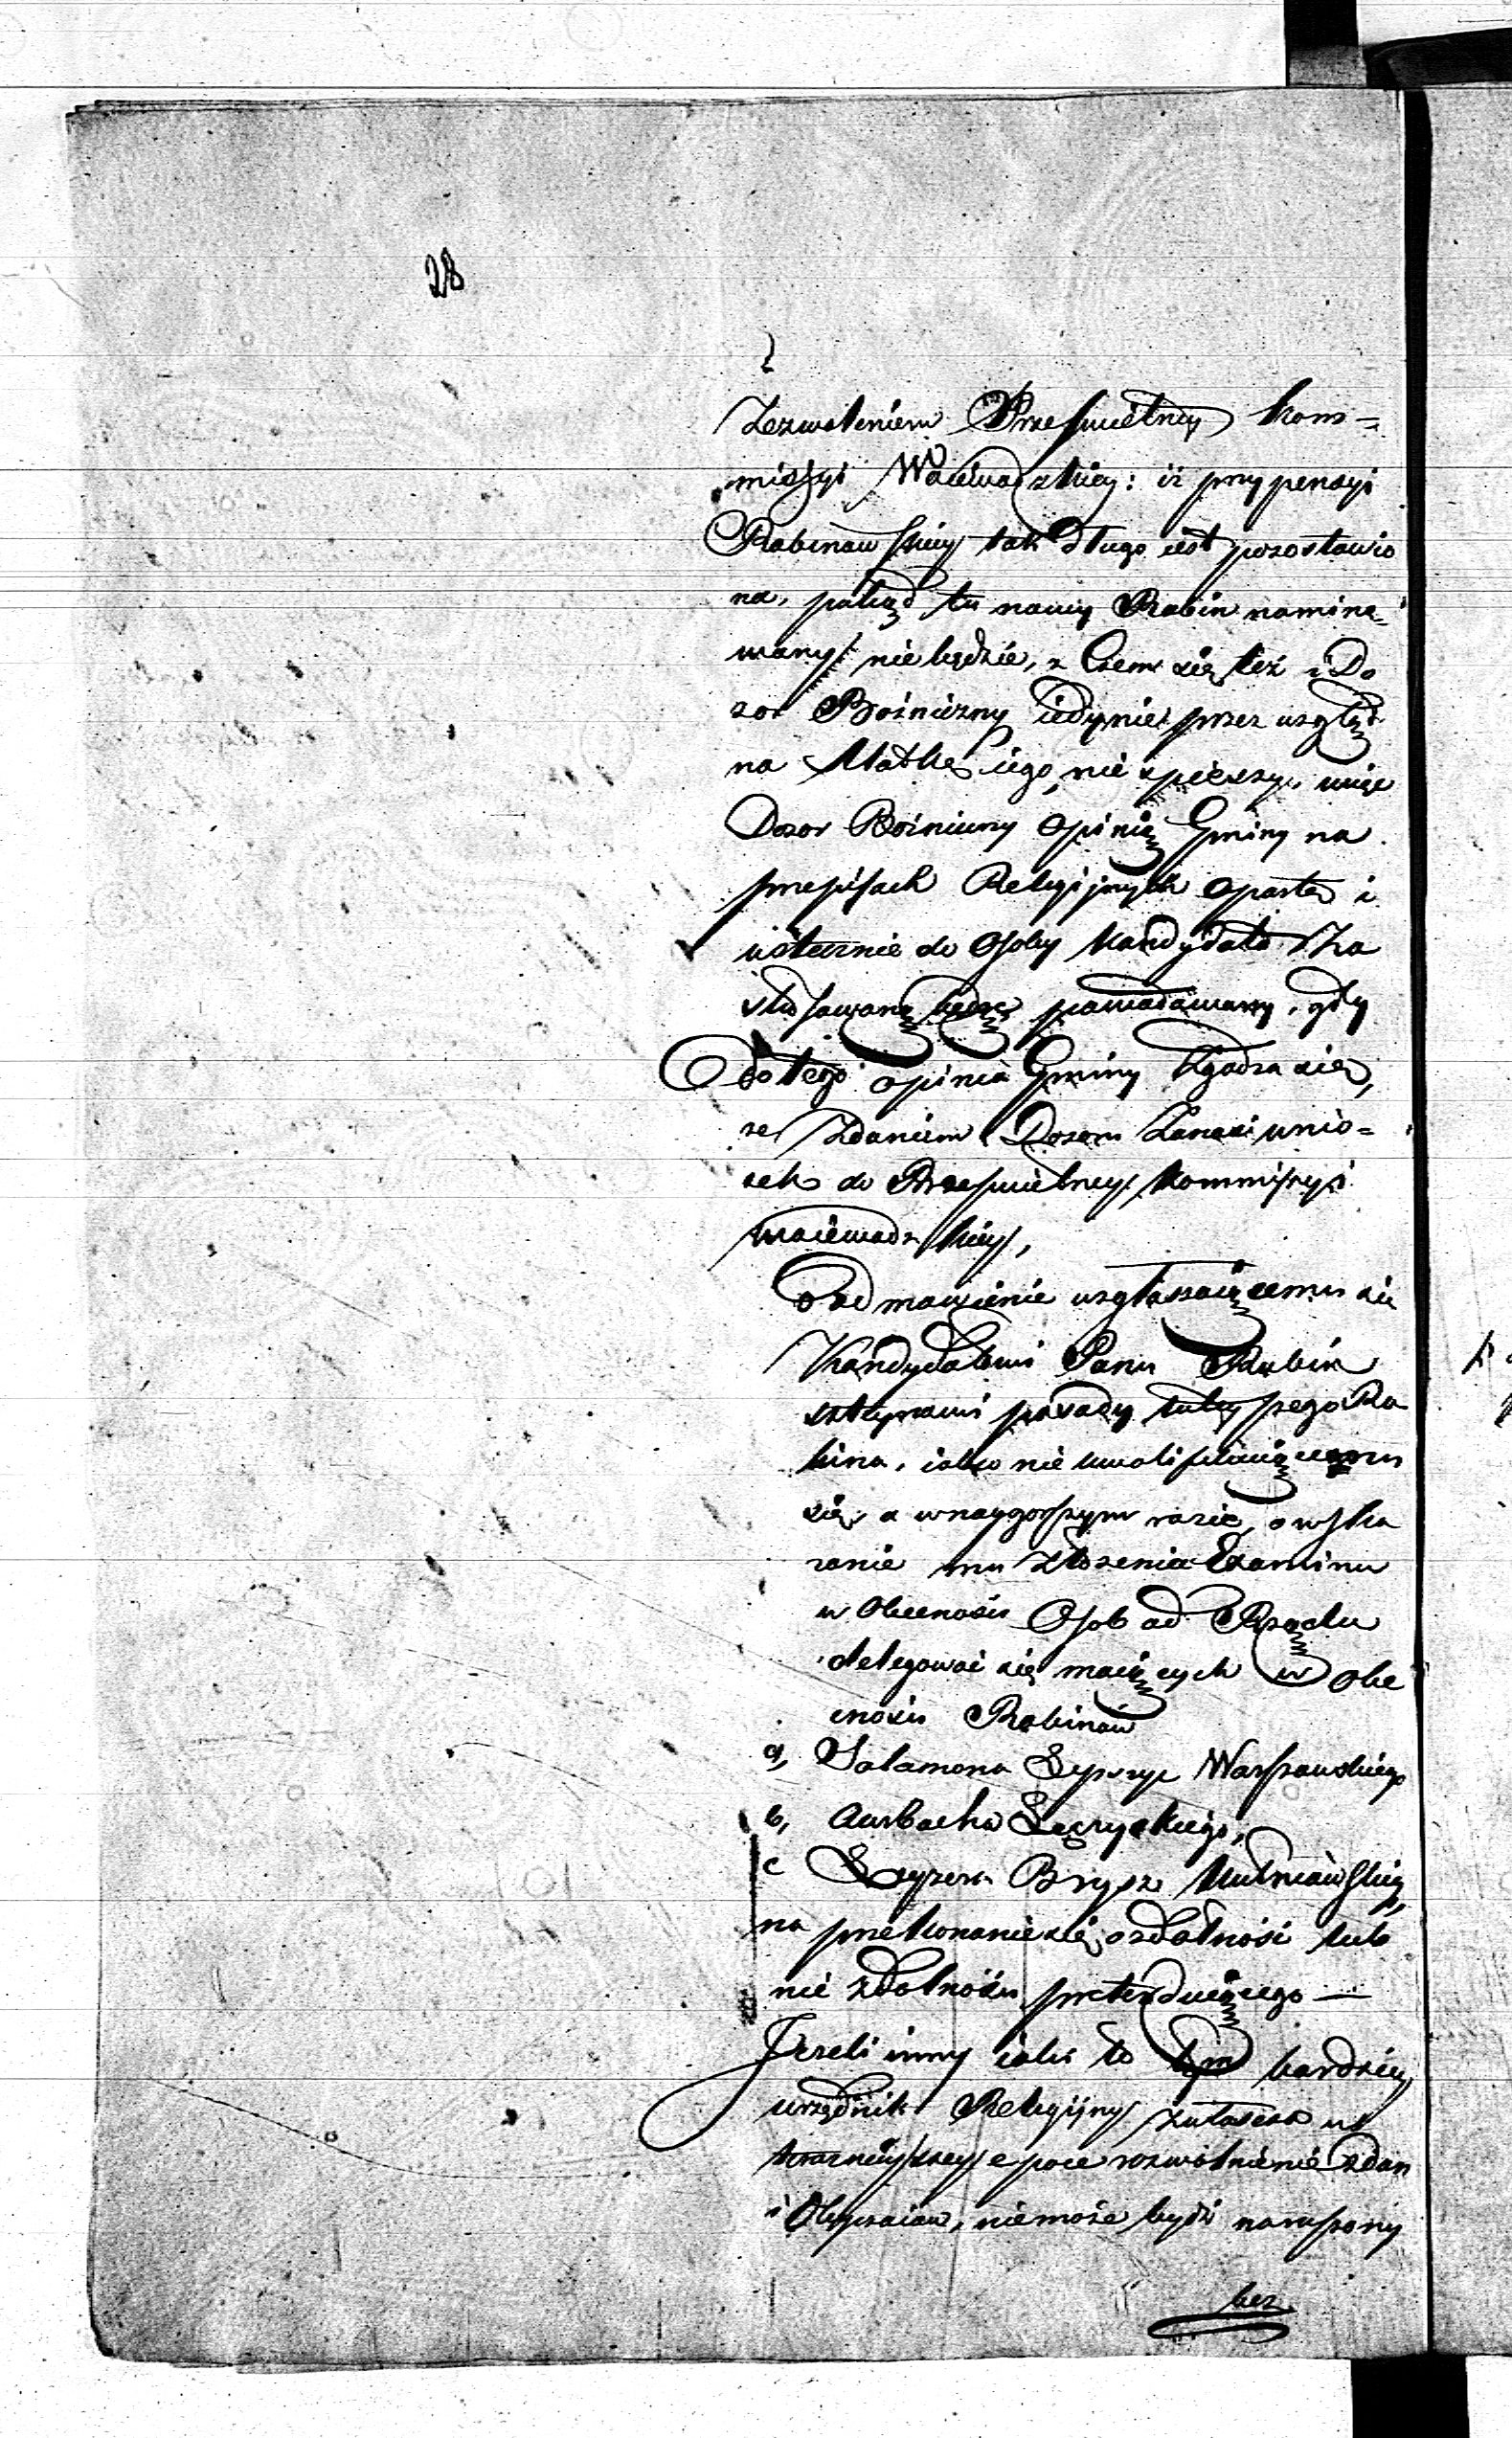 28
Zezwoleniem Prześwietney Kom=
missyi Woiewodzkiey: iż przy pensyi
Rabinowskiey tak długo iest pozostawio
na, pokąd tu nowy Rabin nomino=
wany nie będzie, z Czem się też i Do
zor Bożniczny iedynie przez wzgląd
na Matkę iego nie spieszy, więc
Dozor Bożniczny Opinią Gminy na
przepisach Religijnych opartą i
ustecznie do Osoby Kandydata Za
stosowaną będąc powodowany, gdy
do tego opinia Gminy Zgadza się,
ze Zdaniem Dozoru Zanosi wnio=
sek do Prześwietney Kommissyi
Woiewodzkiey,
o odmowienie wzgłaszaiącemu się
Kandydatowi Panu Rubin
sztynowi posady tuteyszego Ra
bina, iako nie kwalifikuiącemu
się, a w naygorszym razie, o wska
zanie mu złożenia Examinu
w Obecności Osob od Rządu
delegować się maiących w Obe
cności Rabinów
a, Salamona Lipszyc Warszawskiego
b, Aurbacha Łęczyckiego,
c Layzera Brysz Kutnowskiego,
na przekonanie się o zdatności lub
nie zdolności pretenduiącego —
Jezeli inny iaki to tym bardziey
urzędnik Religijny zwłaszcza w
teraznieyszey epoce rozwolnienie zdań
i Obyczaiow, nie może bydź naruszony
bez